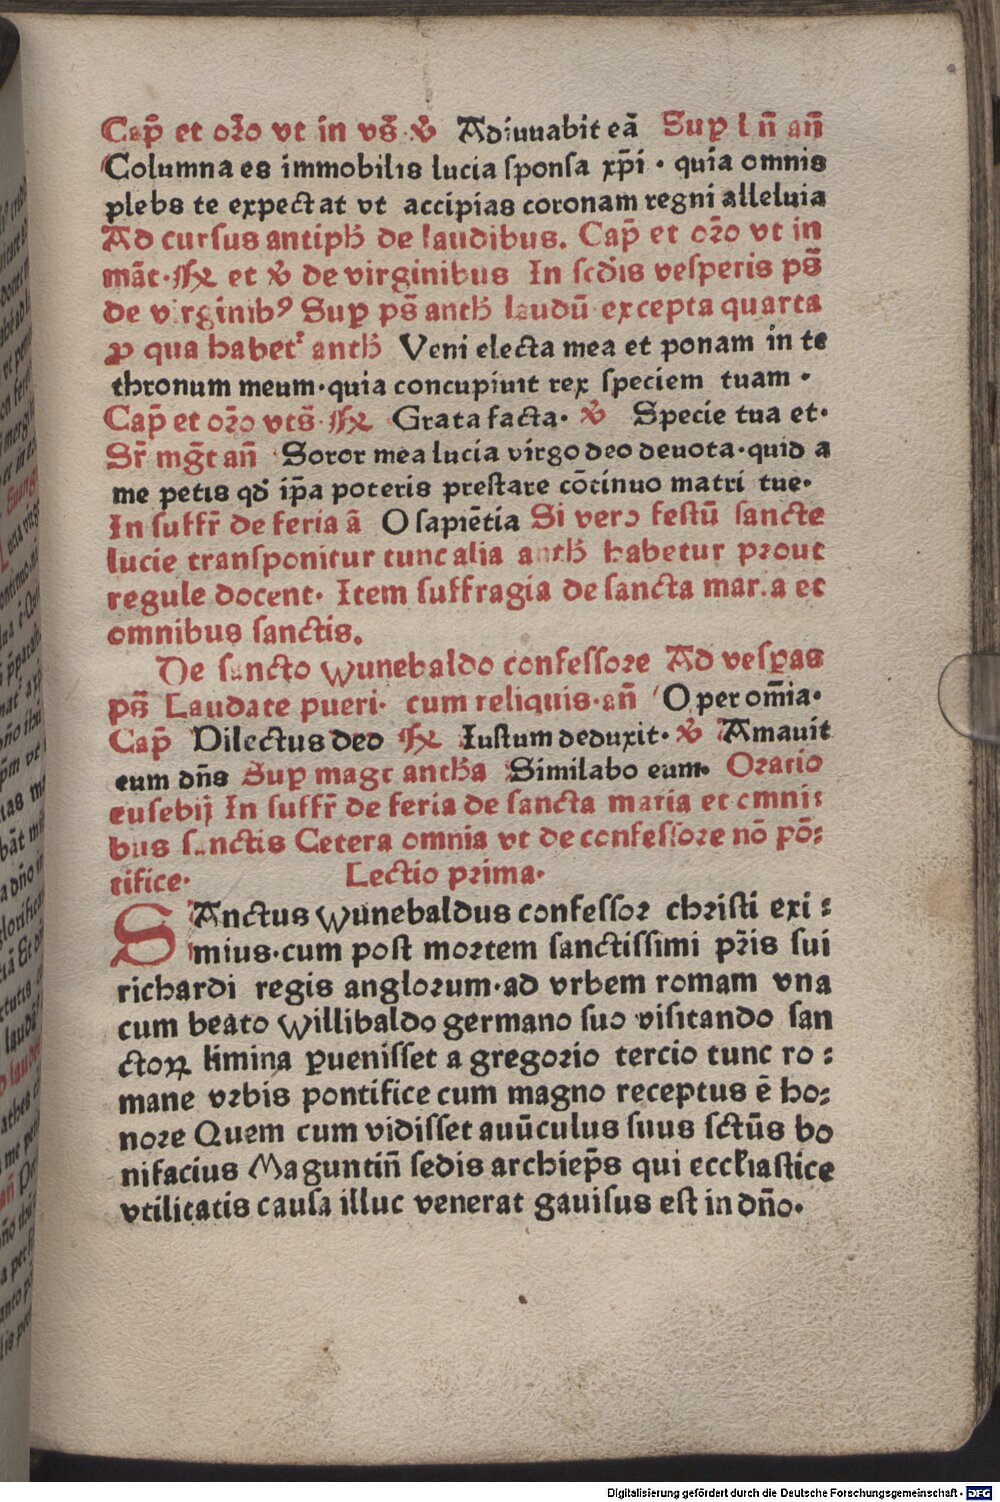 Cap̄ et or̄o vt in vs̄ · ℣ Adiuuabit eā Sup̱ l n̄ an̄
Columna es immobilis lucia ſponſa xp̄i · quia omnis
plebs te expectat vt accipias coronam regni alleluia
Ad curſus antiph̄ de laudibus. Cap̄ et or̄o vt in
māt · ℟ et ℣ de virginibus In ſcd̄is veſperis ps̄
de virginibꝰ Sup̱ ps̄ anth̄ laudū excepta quarta
ꝓ qua habet᷑ anth̄ Veni electa mea et ponam in te
thronum meum · quia concupiuit rex ſpeciem tuam ·
Cap̄ et or̄o vts̄ · ℟ Grata facta · ℣ Specie tua et ·
Sr̄ mḡt an̄ Soror mea lucia virgo deo deuota · quid a
me petis qd̄ ip̄a poteris preſtare cōtinuo matri tue ·
In ſuffr̄ de feria ā O ſapiētia Si vero feſtū ſancte
lucie tranſponitur tunc alia anth̄ habetur prout
regule docent · Item ſuffragia de ſancta maria et
omnibus ſanctis.
De ſancto wunebaldo confeſſore Ad veſꝑas
ps̄ Laudate pueri · cum reliquis · an̄ O per om̄ia ·
Cap̄ Dilectus deo ℟ Iuſtum deduxit · ℣ Amauit
eum dn̄s Sup̱ magt antħa Similabo eum · Oratio
euſebij In ſuffr̄ de feria de ſancta maria et omni⸗
bus ſanctis Cetera omnia vt de confeſſore nō pō⸗
tifice · Lectio prima ·
SAnctus wunebaldus confeſſor chriſti exi⸗
mius · cum poſt mortem ſanctiſſimi pr̄is ſui
richardi regis anglorum · ad vrbem romam vna
cum beato willibaldo germano ſuo viſitando ſan
ctoꝝ limina ꝑueniſſet a gregorio tercio tunc ro⸗
mane vrbis pontifice cum magno receptus ē ho⸗
nore Quem cum vidiſſet auūculus ſuus ſctūs bo
nifacius Maguntin̄ ſedis archiep̄s qui eccƚiaſtice
vtilitatis cauſa illuc venerat gauiſus eſt in dn̄o ·
Digitalisierung gefördert durch die Deutsche Forschungsgemeinschaft - DFG